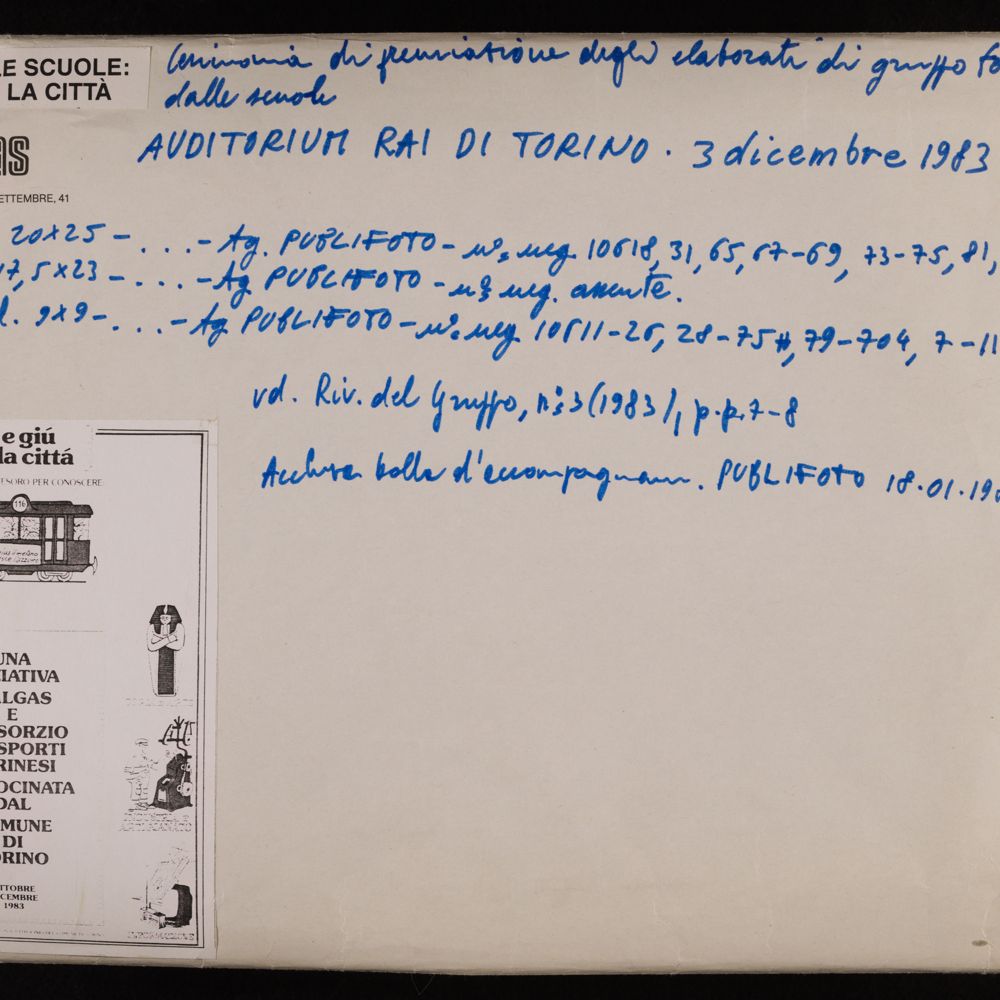 LE SCUOLE:
LA CITTÀ
Cerimonia di premiazione degli elaborati di gruppo fa
dalle scuole
AUDITORIUM RAI DI TORINO. 3 dicembre 1983
as
ETTEMBRE, 41
20x25 - ... - Ag. PUBLIFOTO - n°. neg. 10618, 31, 65, 67-69, 73-75, 81,
17,5x23 - ... - Ag PUBLIFOTO - n° neg. assente.
l. 9x9 - ... - Ag PUBLIFOTO - n°. neg. 10611-26, 28-75, 79-704, 7-11
vd. Riv. del Gruppo, n°3 (1983), p.p. 7-8
Acclusa bolla d'accompagnam. PUBLIFOTO 18.01.198
e giú
la cittá
TESORO PER CONOSCERE
116
UNA
CIATIVA
LGAS
E
SORZIO
SPORTI
RINESI
OCINATA
DAL
MUNE
DI
ORINO
TTOBRE
CEMBRE
1983
INFORMAZIONE